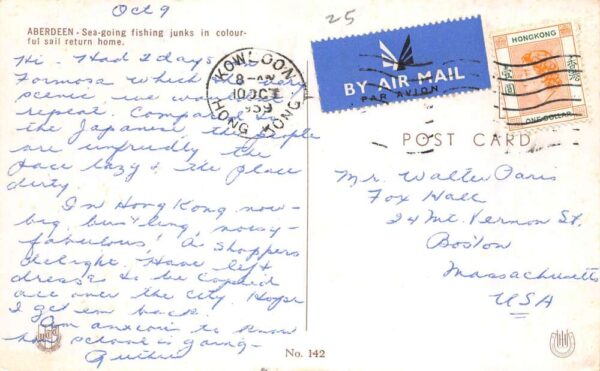 Oct 9
25
ABERDEEN - Sea-going fishing junks in colour-
ful sail return home.
Hi. Had 2 days
Formosa which was very
scenic,
repeat. Compared to
the Japanese, the people
are unfriendly the
race lazy & the place
dirty.
In Hong Kong now -
big, bustling, noisy -
fabulous! A shoppers
delight. Have left
dresses to be copied
all over the city. Hope
I get em back.
Am anxious to know
how school is going -
KOWLOON
8 - AM
10 OC
1959
HONG KONG
BY AIR MAIL
PAR AVION
HONGKONG
壹圓
香港
ONE DOLLAR
POST CARD
Mr. Walter Paris
Fox Hall
24 Mt. Vernon St.
Boston
Massachusetts
USA
No. 142